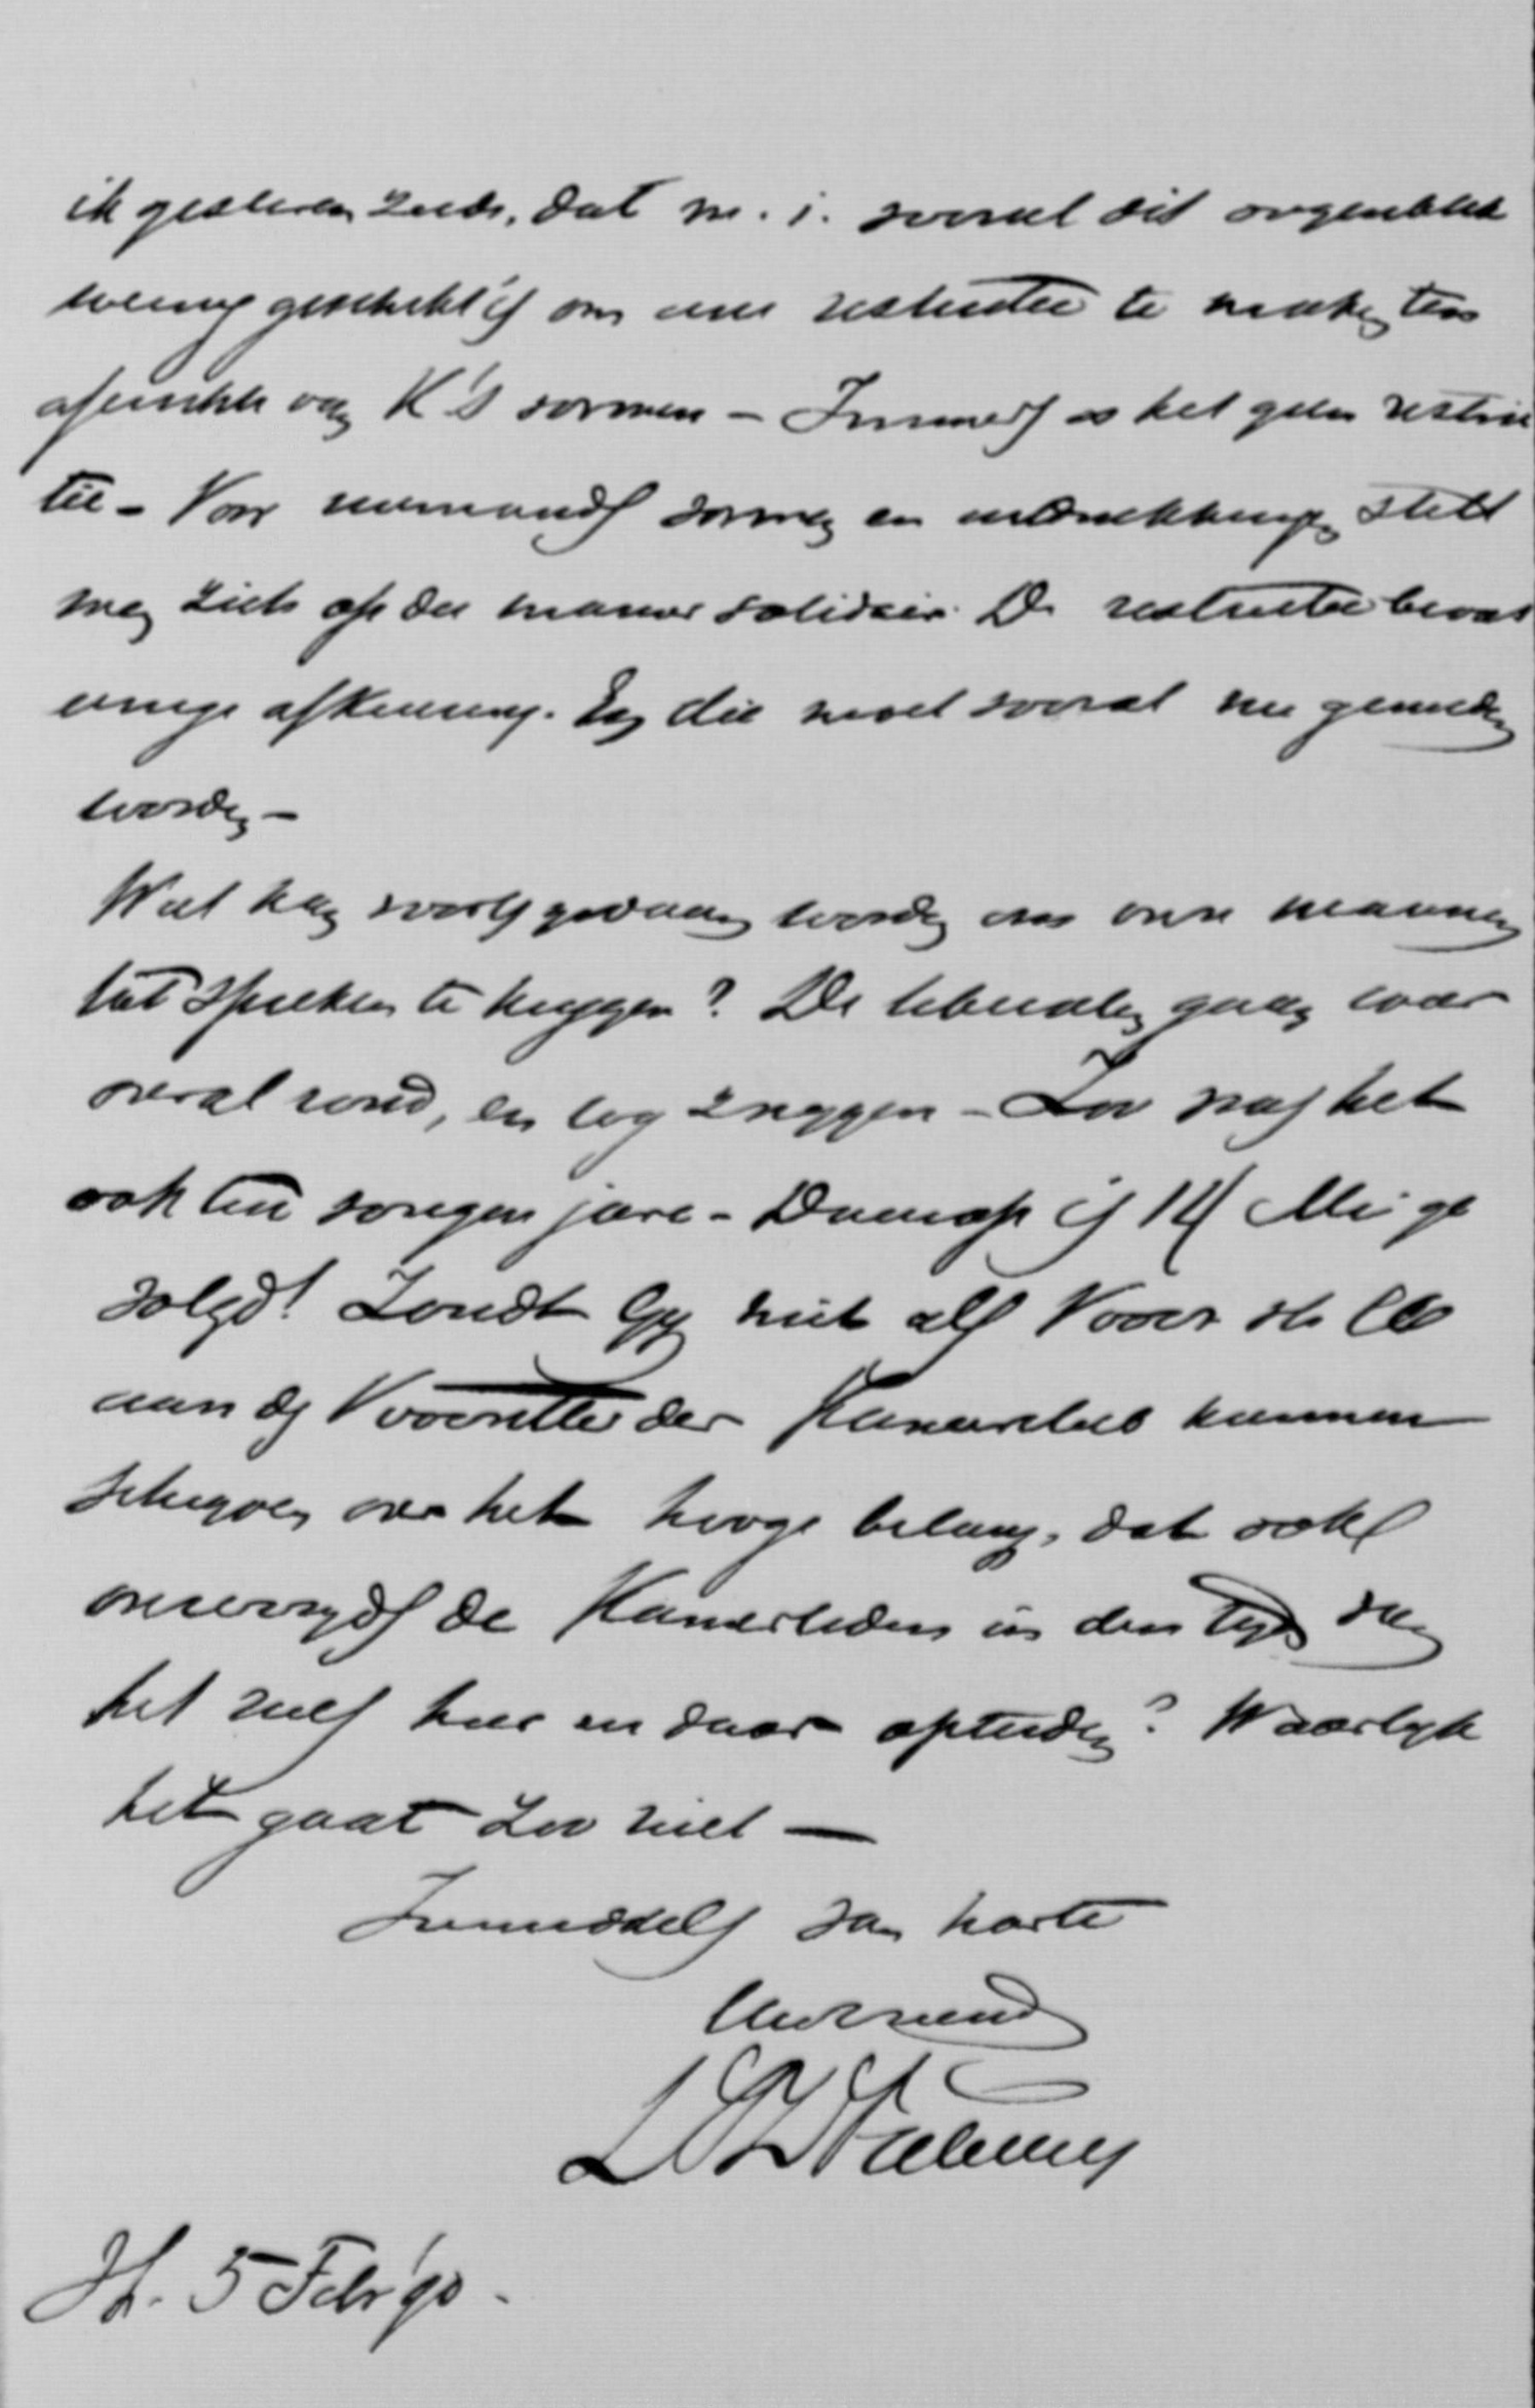 ik gisteren zeide, dat m. i. vooral dit oogenblik
weinig geschikt is om eene restrictie te maken ten
opzichte van K's vormen – Immers is het geen restric
tie – Voor niemands vormen en uitdrukkingen stelt
men zich op die manier solidair. De restrictie bevat
eenige afkeuring. En die moet vooral nu gemeden
worden –
Wat kan voorts gedaan worden om onze mannen
tot spreken te krijgen? De liberalen gaan weer
overal rond, en wij zwijgen – Zoo was het
ook vorigen jare – Daarop is 14 Mei ge
volgd! Zoudt Gij niet als Voorz. v. h. CC
aan den Voorzitter der Kamerclub kunnen
schrijven over het hooge belang, dat ook
onzerzijds de Kamerleden in den tijd van
het reces hier en daar optreden? Waarlijk
het gaat zoo niet —
Inmiddels van harte
Uw vriend
H. 5 Febr '90.